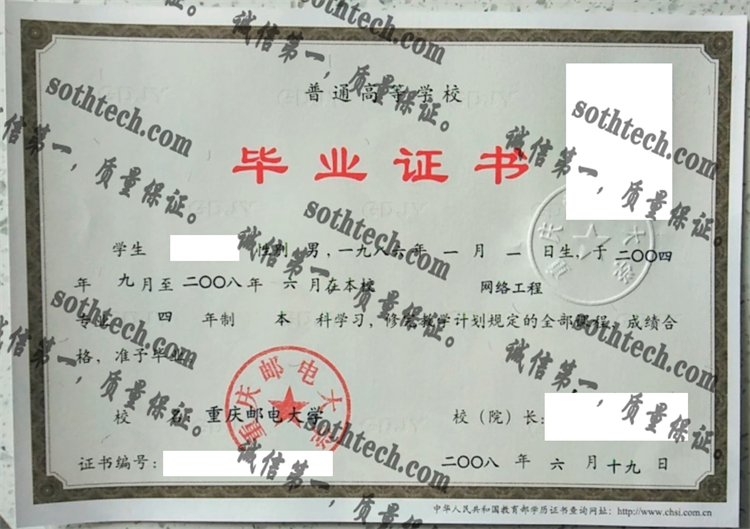 普通高等学校
毕业证书
学生 性别 男，一九八六年 一 月 一 日生，于二〇〇四
年 九 月至 二〇〇八 年 六 月在本校 网络工程
专业 四 年制 本 科学习，修完教学计划规定的全部课程，成绩合
格，准予毕业。
校 名 重庆邮电大学 校（院）长：
证书编号： 二〇〇八 年 六 月 十九 日
中华人民共和国教育部学历证书查询网址：http://www.chsi.com.cn
重庆邮电大学
sothtech.com
诚信第一，质量保证。
sothtech.com
诚信第一，质量保证。
sothtech.com
诚信第一，质量保证。
sothtech.com
诚信第一，质量保证。
sothtech.com
诚信第一，质量保证。
sothtech.com
诚信第一，质量保证。
sothtech.com
诚信第一，质量保证。
sothtech.com
诚信第一，质量保证。